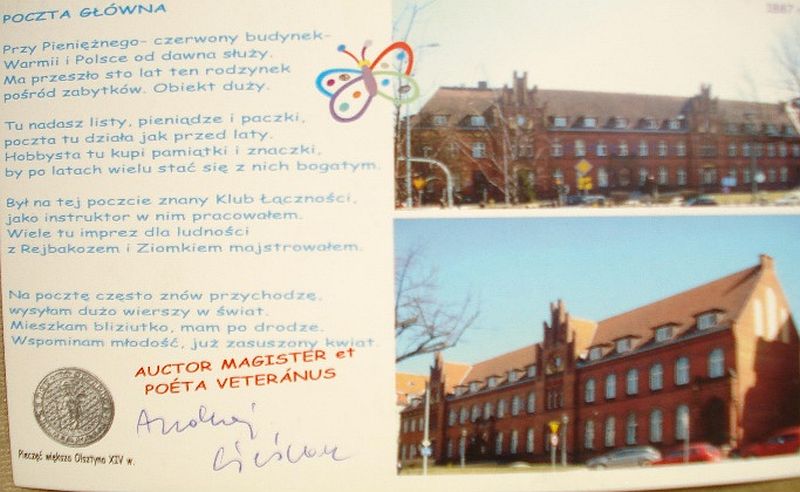 POCZTA GŁÓWNA
Przy Pieniężnego- czerwony budynek-
Warmii i Polsce od dawna służy.
Ma przeszło sto lat ten rodzynek
pośród zabytków. Obiekt duży.
Tu nadasz listy, pieniądze i paczki,
poczta tu działa jak przed laty.
Hobbysta tu kupi pamiątki i znaczki,
by po latach wielu stać się z nich bogatym.
Był na tej poczcie znany Klub Łączności,
jako instruktor w nim pracowałem.
Wiele tu imprez dla ludności
z Rejbakozem i Ziomkiem majstrowałem.
Na pocztę często znów przychodzę,
wysyłam dużo wierszy w świat.
Mieszkam bliziutko, mam po drodze.
Wspominam młodość, już zasuszony kwiat.
AUCTOR MAGISTER et
POÉTA VETERÁNUS
Andrzej
Pieczęć większa Olsztyna XIV w.